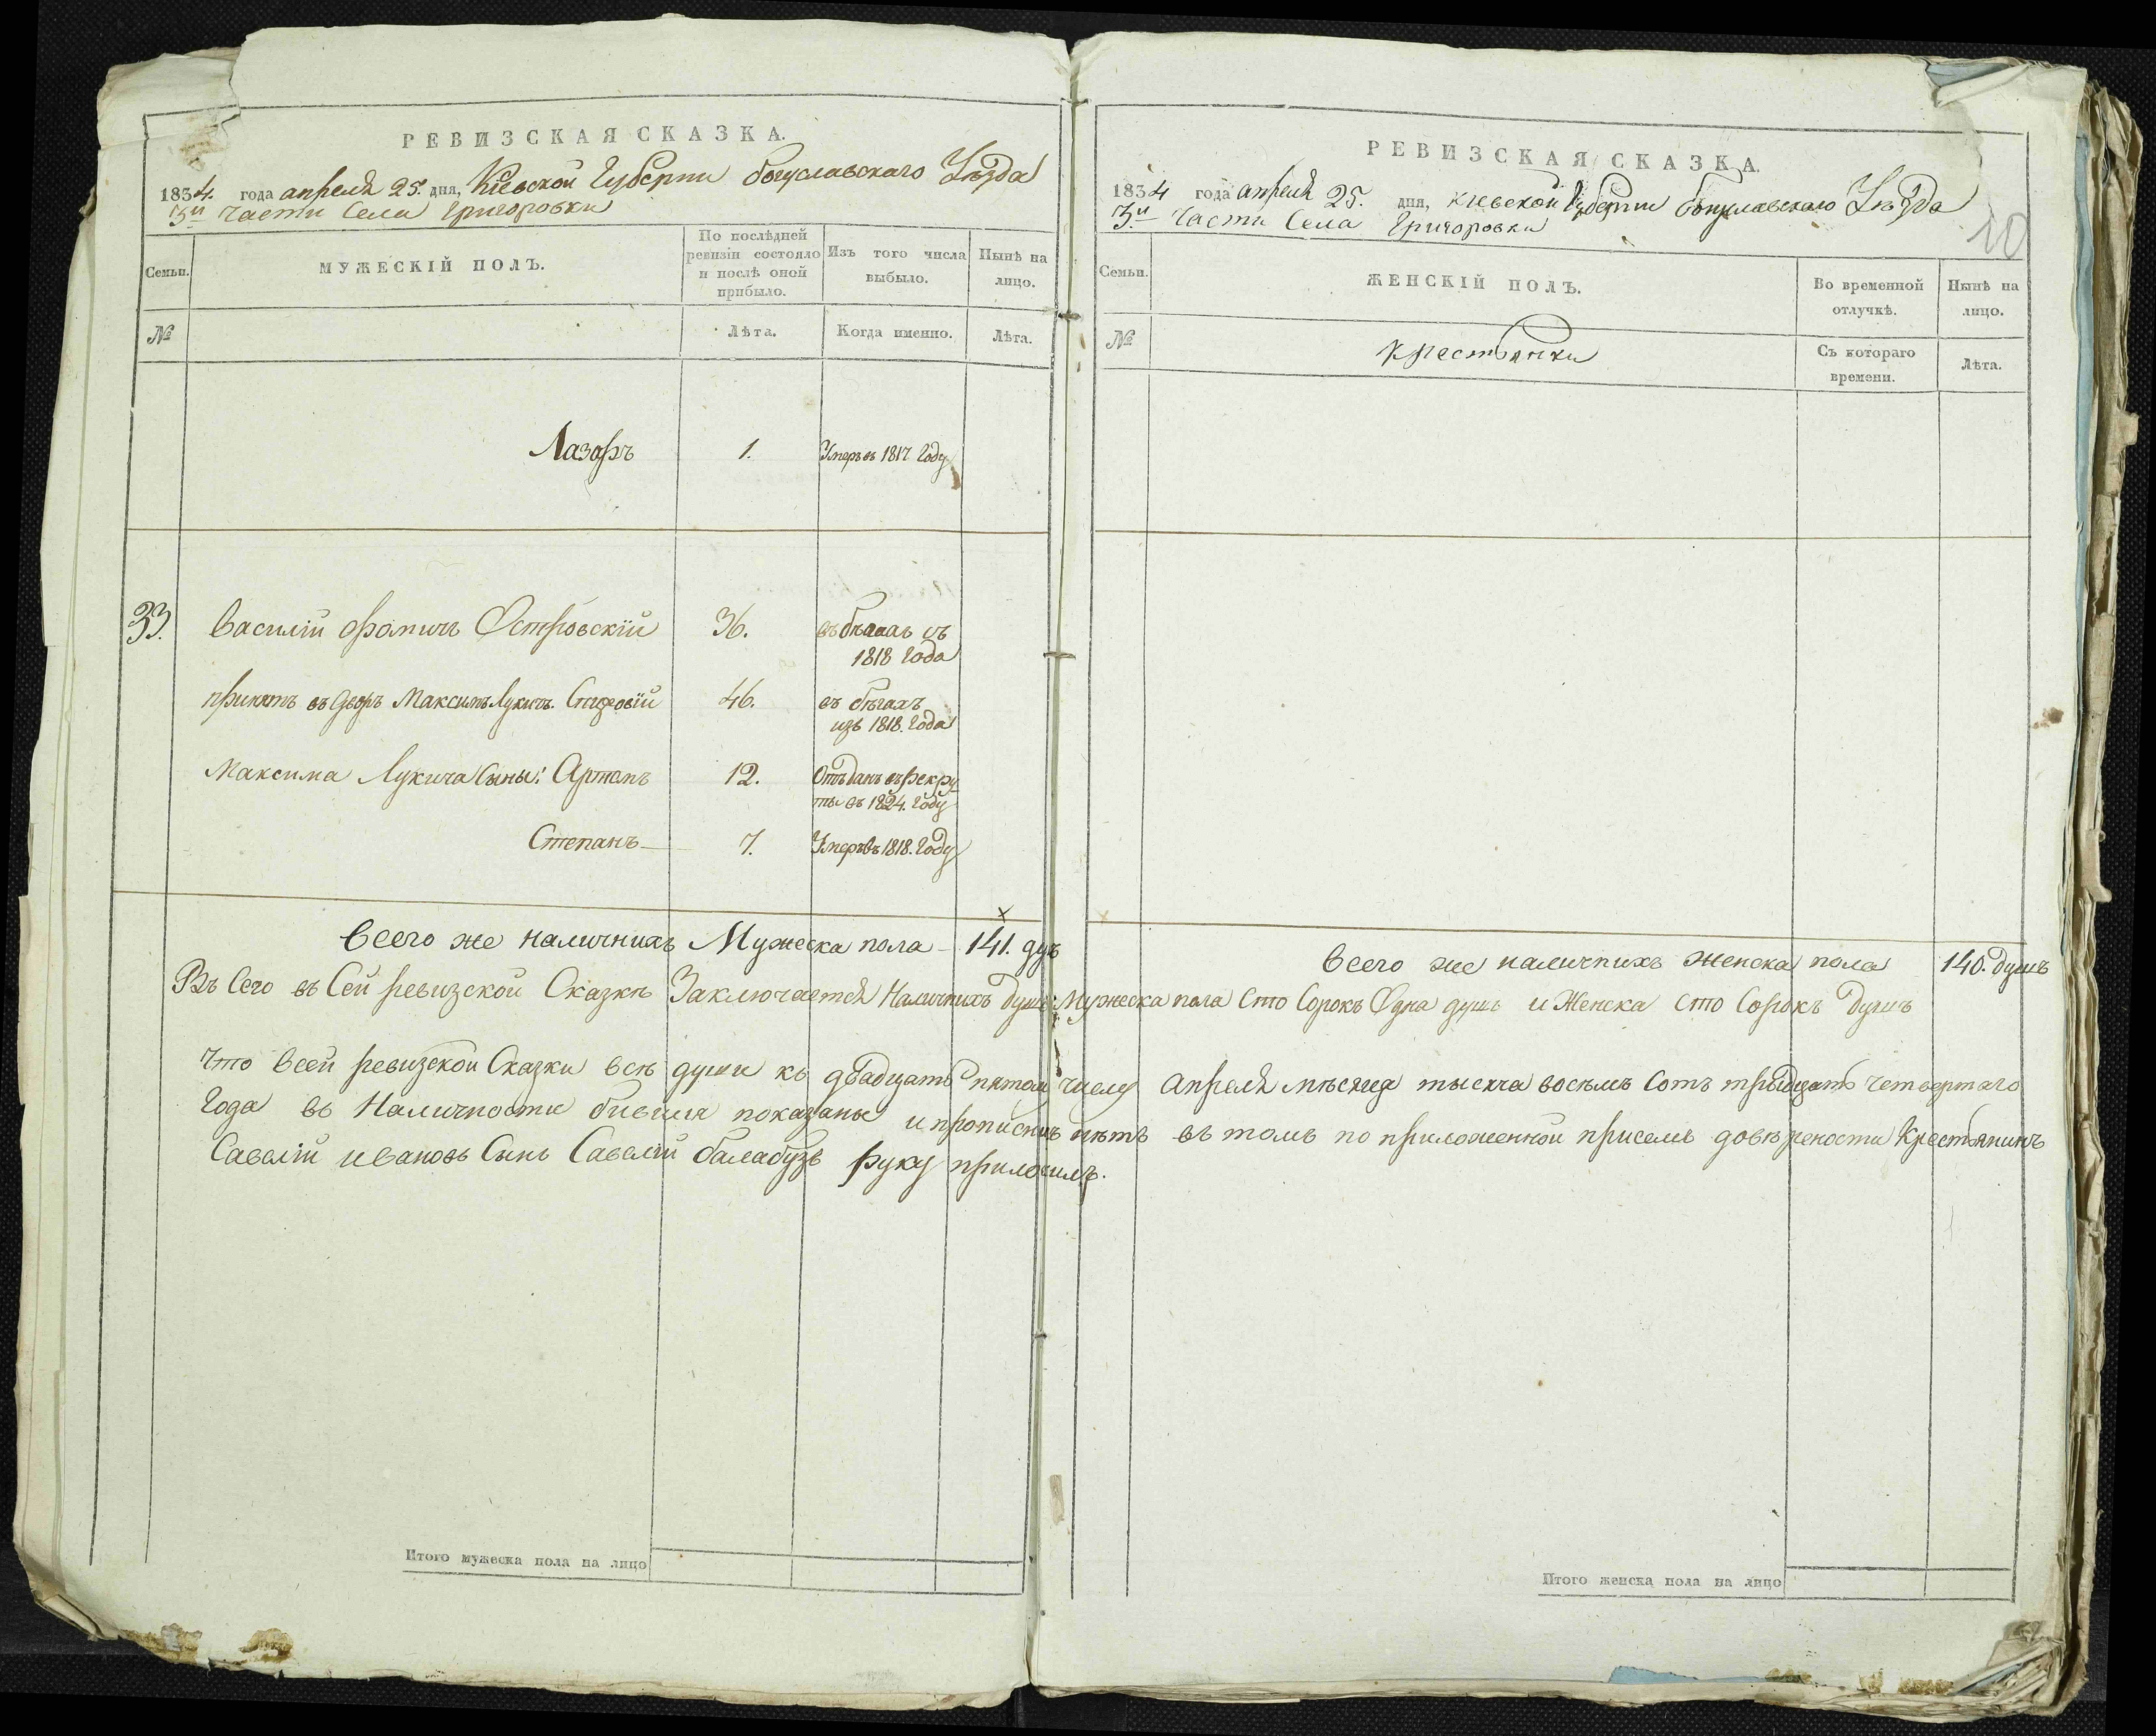 РЕВИЗСКАЯ СКАЗКА.
1834. года апреля 25. дня, Кіевской Губерніи богуславскаго Уѣзда
3й части Села Григоровки
Семьи.
МУЖЕСКІЙ ПОЛЪ.
По послѣдней ревизіи состояло и послѣ оной прибыло.
Изъ того числа выбыло.
Нынѣ на лицо.
№
Лѣта.
Когда именно.
Лѣта.
Лазоръ 1. Умеръ въ 1817 Году
33. Василій Островскій 36. въ бѣгахъ съ
1818 Года
принятъ въ дворъ Максимъ Лукичъ 46. въ бѣгахъ
изъ 1818. Года
Максима Лукича Сыны: Артемъ 12. Отъданъ въ рекру
ты въ 1824. Году
Степанъ 7. Умеръ въ 1818. Году
Всего же наличнихъ Мужеска пола 141. душ
РЕВИЗСКАЯ СКАЗКА.
1834 года апреля 25. дня, Кіевской Губерніи богуславскаго Уѣзда
3й части Села Григоровки
10
Семьи.
ЖЕНСКІЙ ПОЛЪ.
Во временной отлучкѣ.
Нынѣ на лицо.
№
Крестьянки
Съ котораго времени.
Лѣта.
Всего же наличнихъ женска пола 140. душъ
Сего въ Сей ревизской Сказкѣ Заключается Наличнихъ душъ Мужеска пола Сто Сорокъ Одна душъ и Женска Сто Сорокъ душъ
Что всей ревизской Сказки всѣ души къ двадцать пятому числу Апреля мѣсяца тысяча восемь Сотъ тридцать четвертаго
Года въ Наличности бившия показаны и прописныхъ нѣтъ въ томъ по приложенной присемъ довѣрености Крестьянинъ
Савелій ивановъ Сынъ Савелій балабузъ руку приложилъ.
Итого мужеска пола на лицо
Итого женска пола на лицо